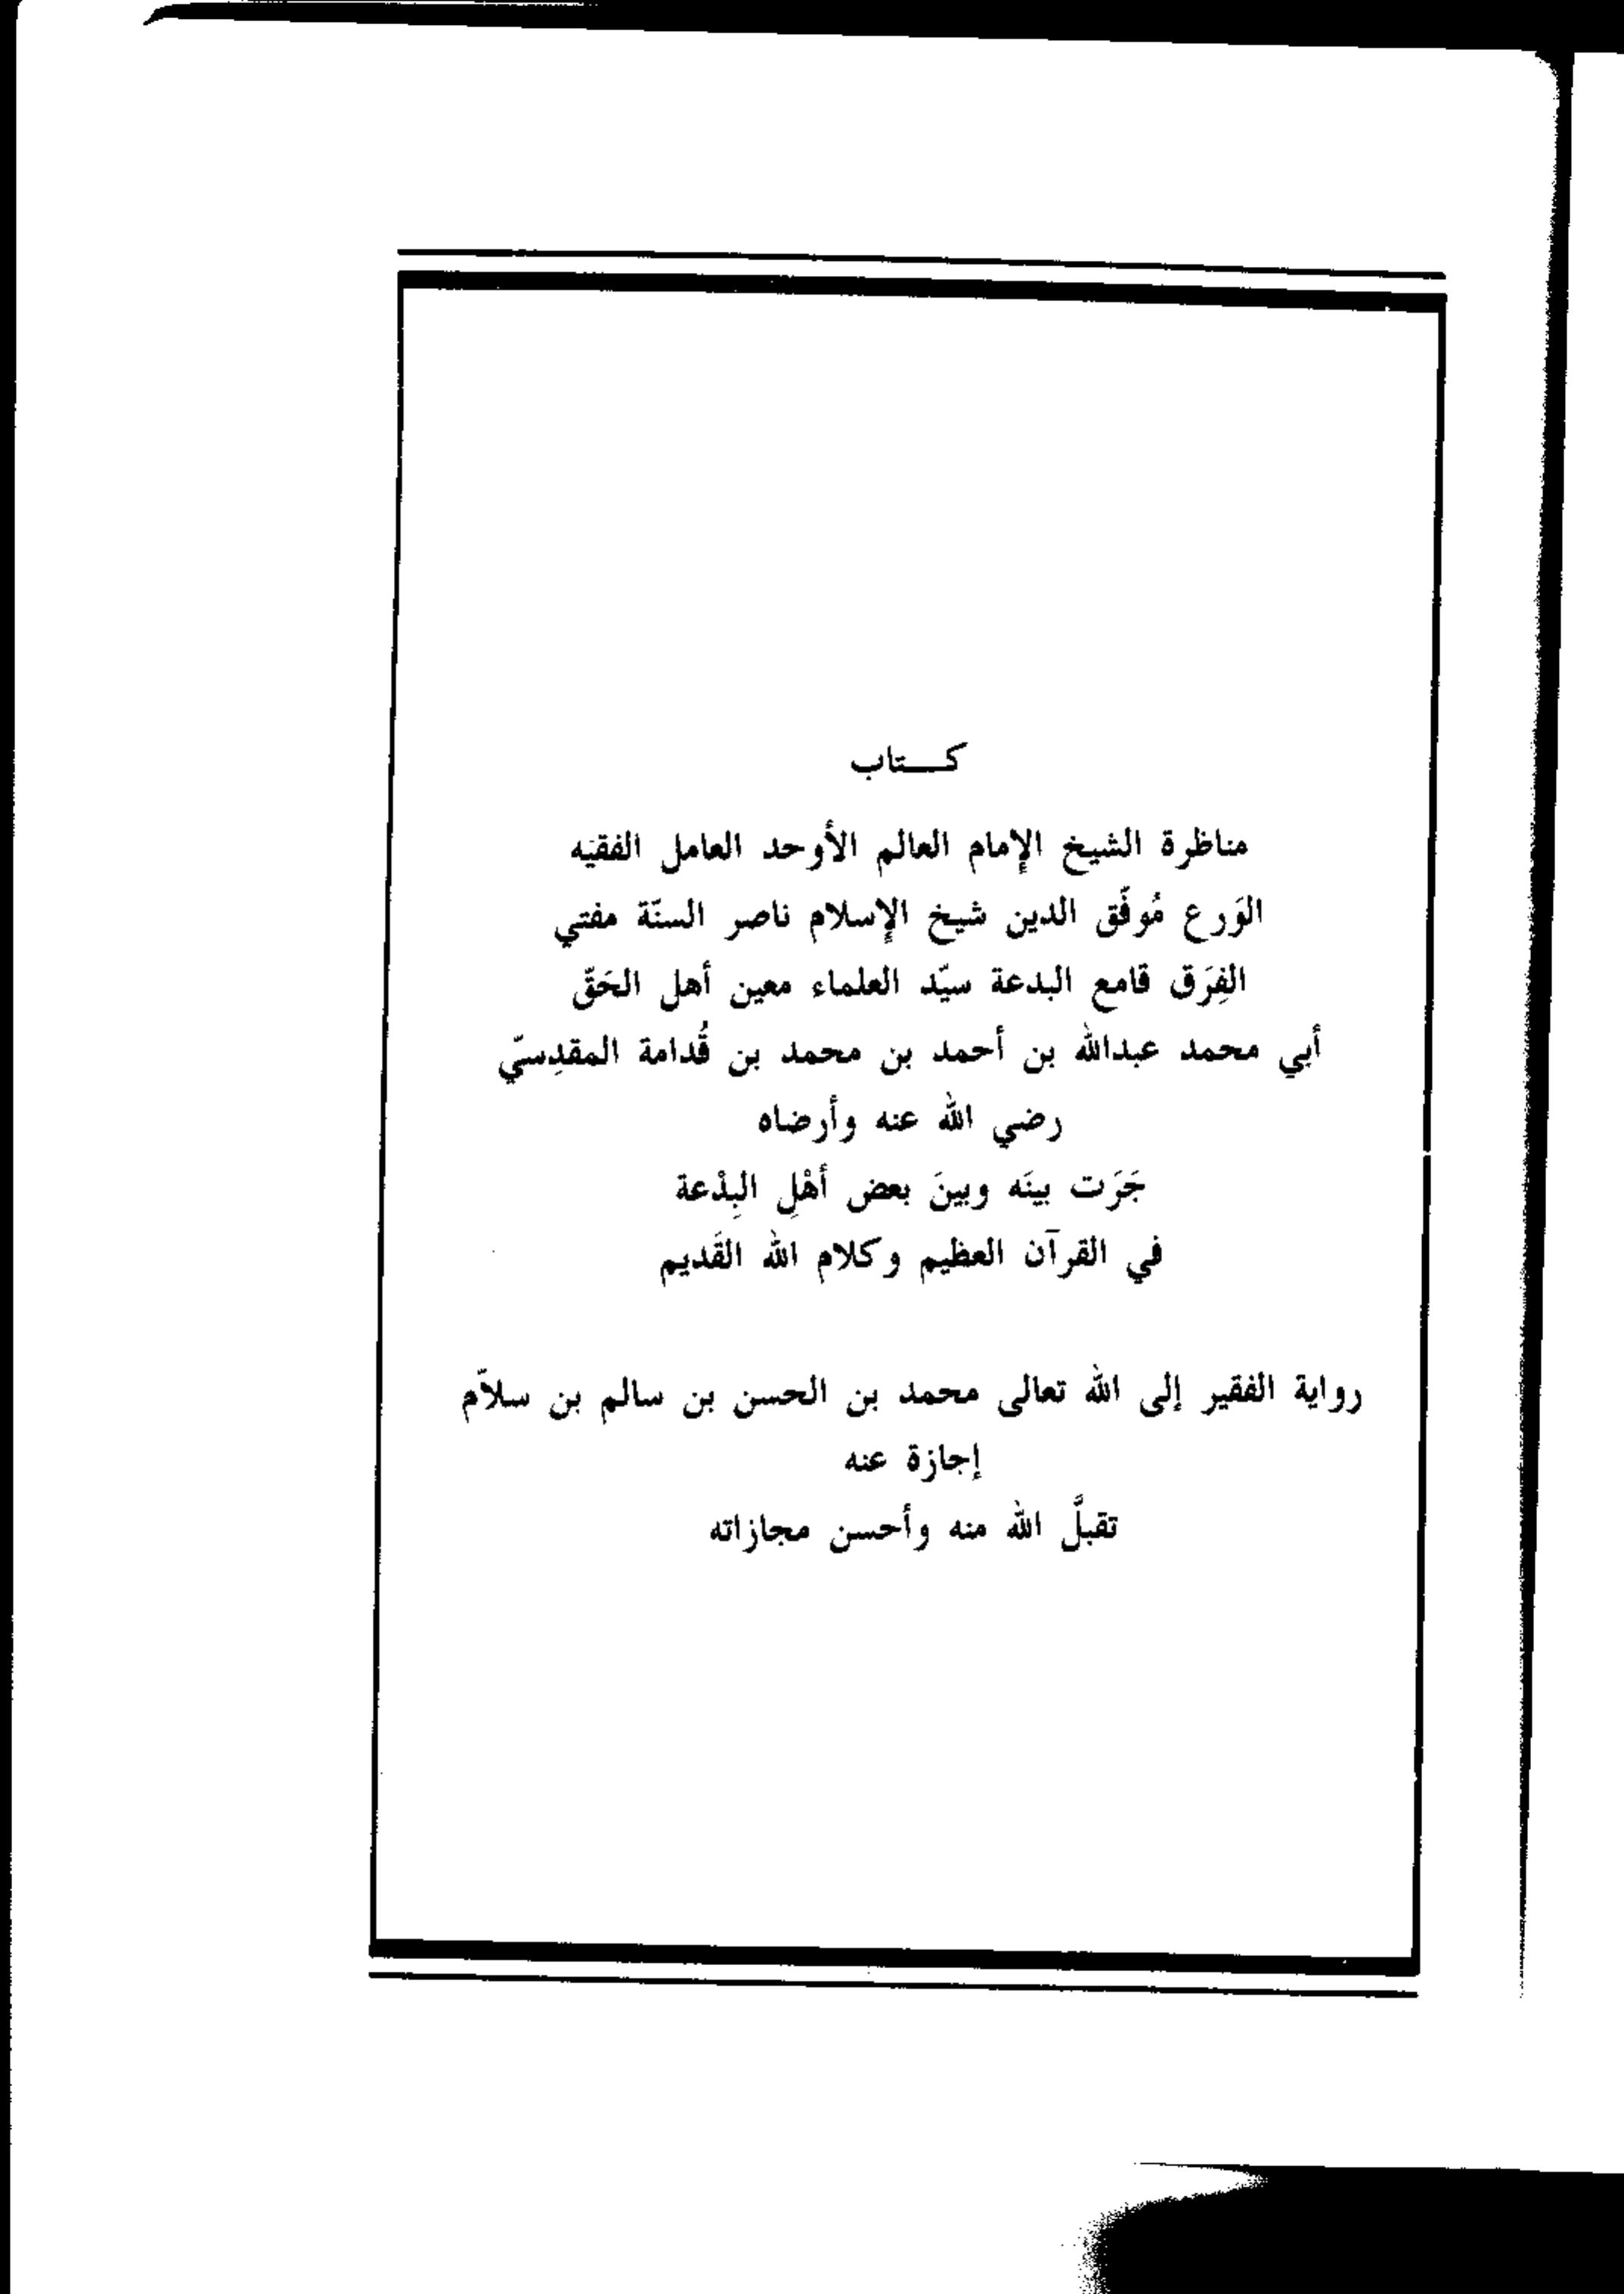 كـــتاب
مناظرة الشيخ الإمام العالم الأوحد العامل الفقيَه
الوَرع مُوفَّق الدين شيخ الإسلام ناصر السنّة مفتي
الفِرَق قامع البدعة سيّد العلماء معين أهل الحَقّ
أبي محمد عبدالله بن أحمد بن محمد بن قُدامة المقدِسيّ
رضي الله عنه وأرضاه
جَرَت بينَه وبينَ بعض أهْلِ البِدْعة
في القرآن العظيم وكلام الله القَديم
رواية الفقير إلى الله تعالى محمد بن الحسن بن سالم بن سلاّم
إجازة عنه
تقبلَّ الله منه وأحسن مجازاته